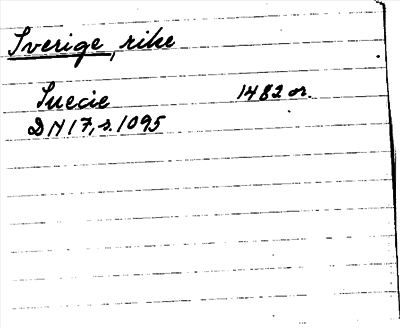 Sverige, rike
Suecie 1482 or.
DN 17, s. 1095